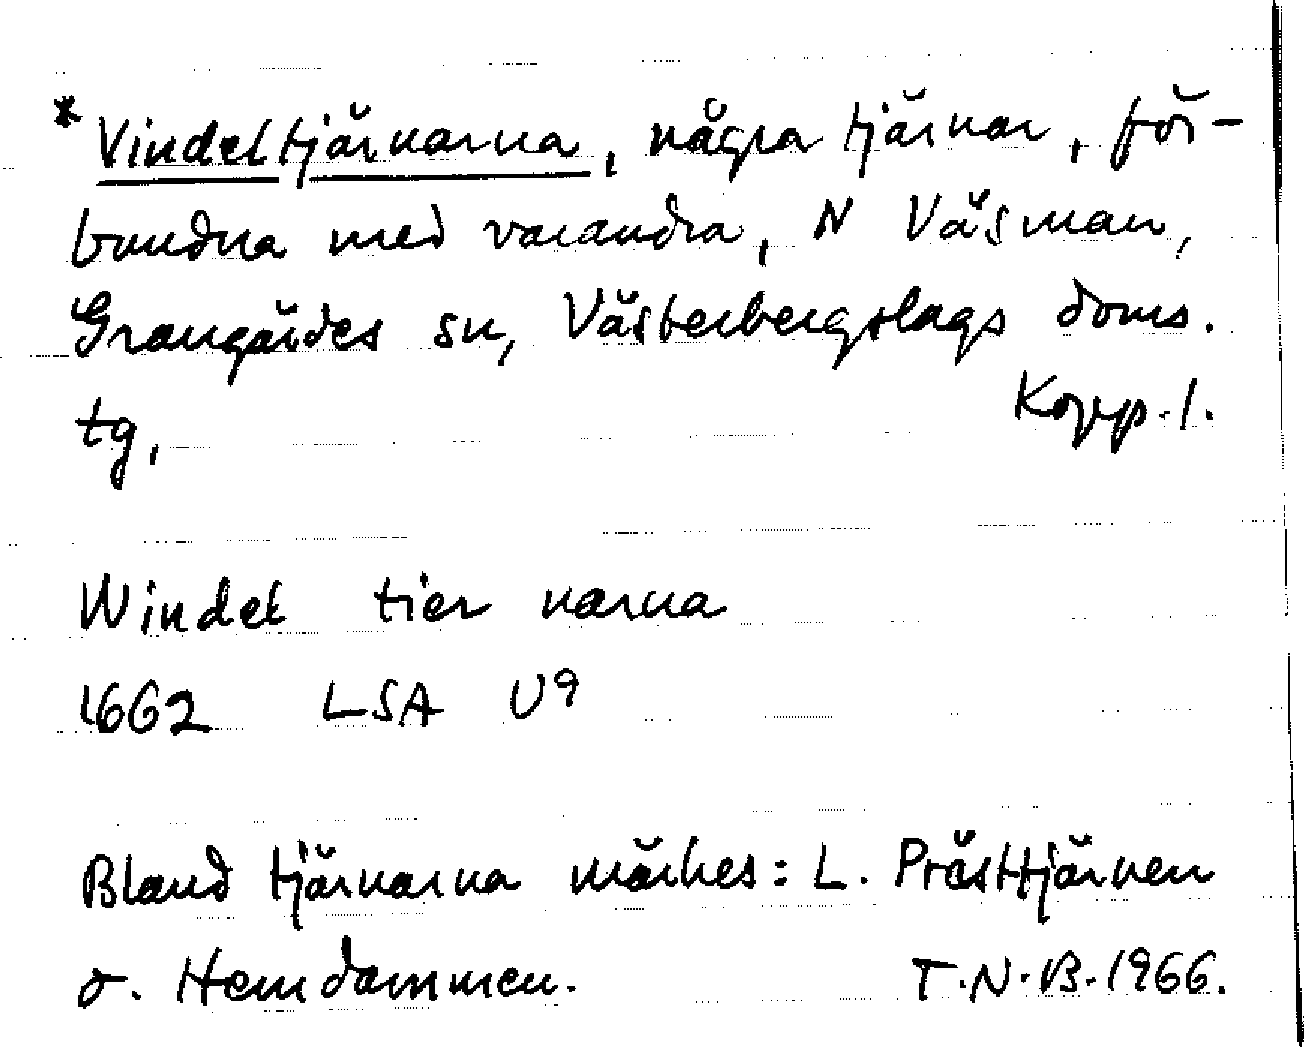 * Vindeltjärnarna, några tjärnar, för-
bundna med varandra, N Väsman,
Grangärdes sn, Västerbergslags doms.
tg, Kopp. l.
Windel tier narna
1662 LSA U9
Bland tjärnarna märkes: L. Prästtjärnen
o. Hemdammen. T.N.B. 1966.